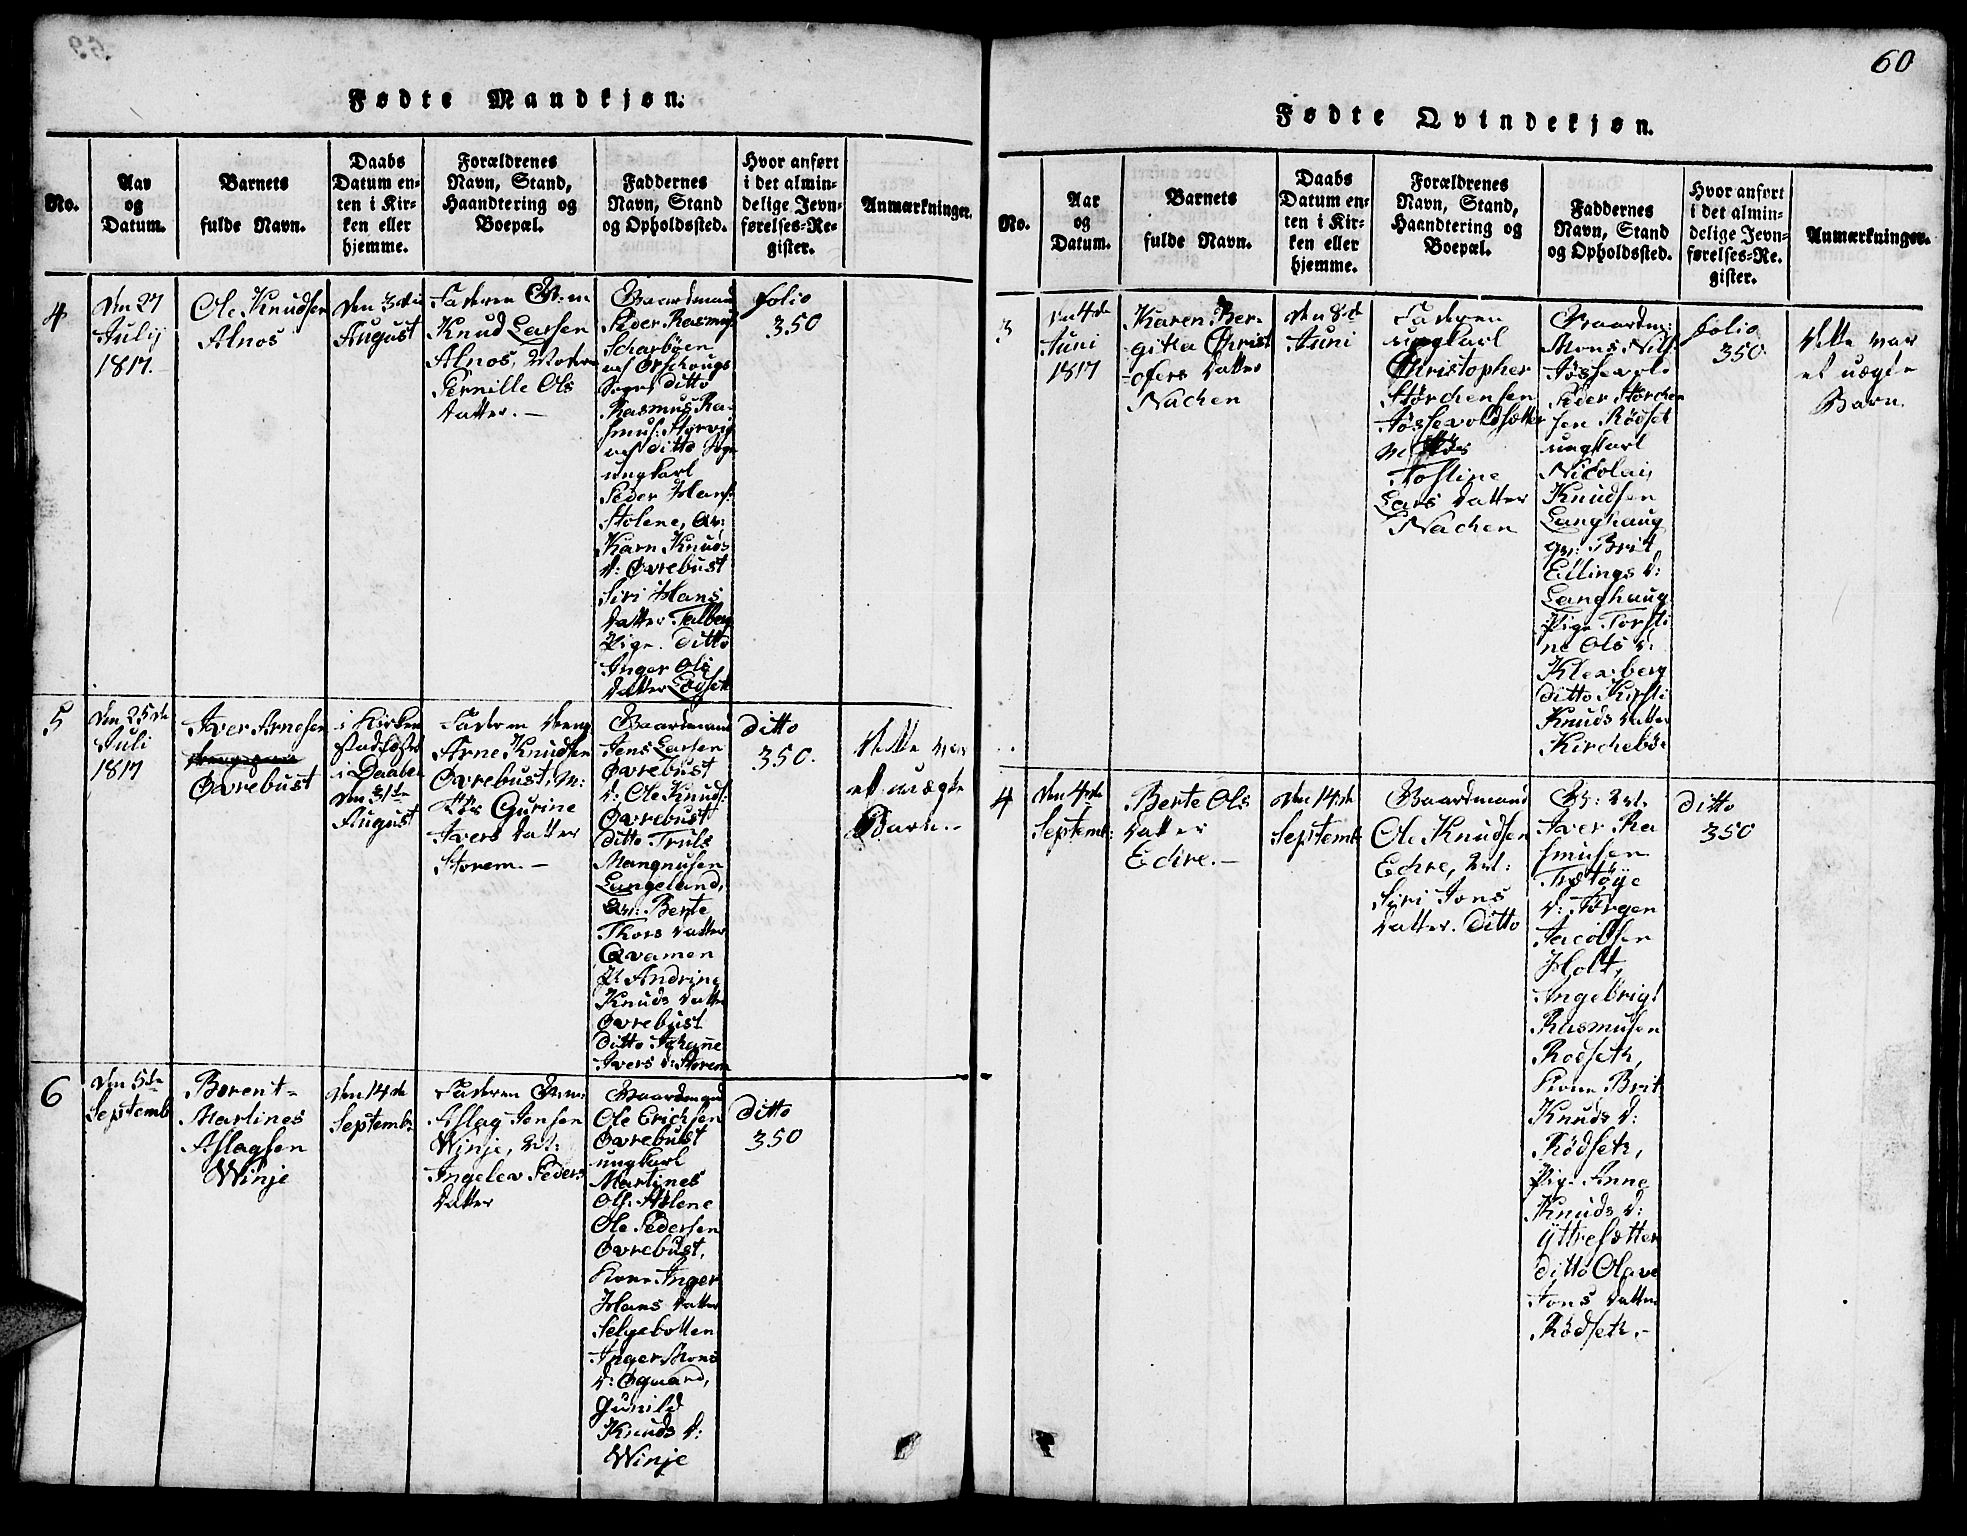 60
Fødte Mandkjøn.
No.
Aar
og
Datum.
Barnets
fulde Navn.
Daabs
Datum en-
ten i Kir-
ken eller
hjemme.
Forældrenes
Navn, Stand,
Haandtering og
Boepæl.
Faddernes
Navn, Stand
og Opholdssted.
Hvor anført
i det almin-
delige Jevn-
førelses-Re-
gister.
Anmærkninger.
4
den 27
Julij
1817.
Ole Knudsen
Alnos
den 3die
August
Faderen
Knud Larsen
Alnos, Moderen
Pernille Ols
datter. —
Gaardmand
Peder Rasmus
Scharbøen
af Ørschougs
Sogn ditto
Rasmus Ra-
smus:
af ditto Sogn
ungkarl
Peder Hans:
Stolene,
Karn Knuds
d: Øvrebust
Siri Hans
datter Talberg
Pige. ditto
Inger Ols
datter
folio
350
5
den 25de
Juli
1817
Iver Arnesen
Øvrebust
i Kirken
i Daaben
den 31te
August
Faderen dreng
Arne Knudsen
Øvrebust, M:
Gurine
Ivers datter
Storem. —
Gaardmand
Jens Larsen
Øvrebust
d: Ole Knuds:
Øvrebust
ditto Truls
Mangnusen
Langeland,
Berte
Thors datter
Qvamen
P: Andrine
Knuds datter
Øvrebust
ditto Johanne
Ivers d: Storem
ditto
350.
Dette var
et uægte
Barn. —
6
den 5te
Septemb
Berent-
Martines
Aslagsen
Winje
den 14de
Septemb:
Faderen
Aslag Jensen
Winje,
Ingelev Peders
datter
Gaardmand
Ole Erichsen
Øvrebust
ungkarl
Martines
Ols: Stolene
Ole Pedersen
Øvrebust,
Kone Inger
Hans datter
Selgebotten
Inger Mons
d: Øguard,
Gunild
Knuds d:
Winje
ditto
350
Fødte Qvindekjøn.
No.
Aar
og
Datum.
Barnets
fulde Navn.
Daabs
Datum en-
ten i Kir-
ken eller
hjemme.
Forældrenes
Navn, Stand,
Haandtering og
Boepæl.
Faddernes
Navn, Stand
og Opholdssted.
Hvor anført
i det almin-
delige Jevn-
førelses-Re-
gister.
Anmærkninger.
3
den 4de
Juni
1817
Karen Ber-
githa Christ
-ofers datter
Nachen
den 8de
Juni
Faderen
ungkarl
Christopher
Størchensen
Jøssevoldsætter
Tostine
Lars datter
Nachen
Gaardm:
Mons Nils:
Jøssevol:
Peder Størchen
sen Rødset
ungkarl
Nicolai
Knudsen
Langhaug
Brit
Ellings d:
Langhaug
Pige Torsti
ne Ols d:
Kleusberg
ditto Kirsti
Knuds datter
Kirchebøe
folio
350.
Dette var
et uægte
Barn.
4
den 4de
Septemb:
Berte Ols
datter
Echre. —
den 14de
Septemb
Gaardmand
Ole Knudsen
Echre,
Siri Jons
datter. ditto
Iver Ra
smusen
Trætøye
d: Jørgen
Jacobsen
Holt,
Ingebrigt
Rasmusen
Rodseth,
Kone Brit
Knuds d:
Rødseth,
Pige Anne
Knuds d:
Yttresætter
ditto Olave
Jons datter
Rødseth. —
ditto
350